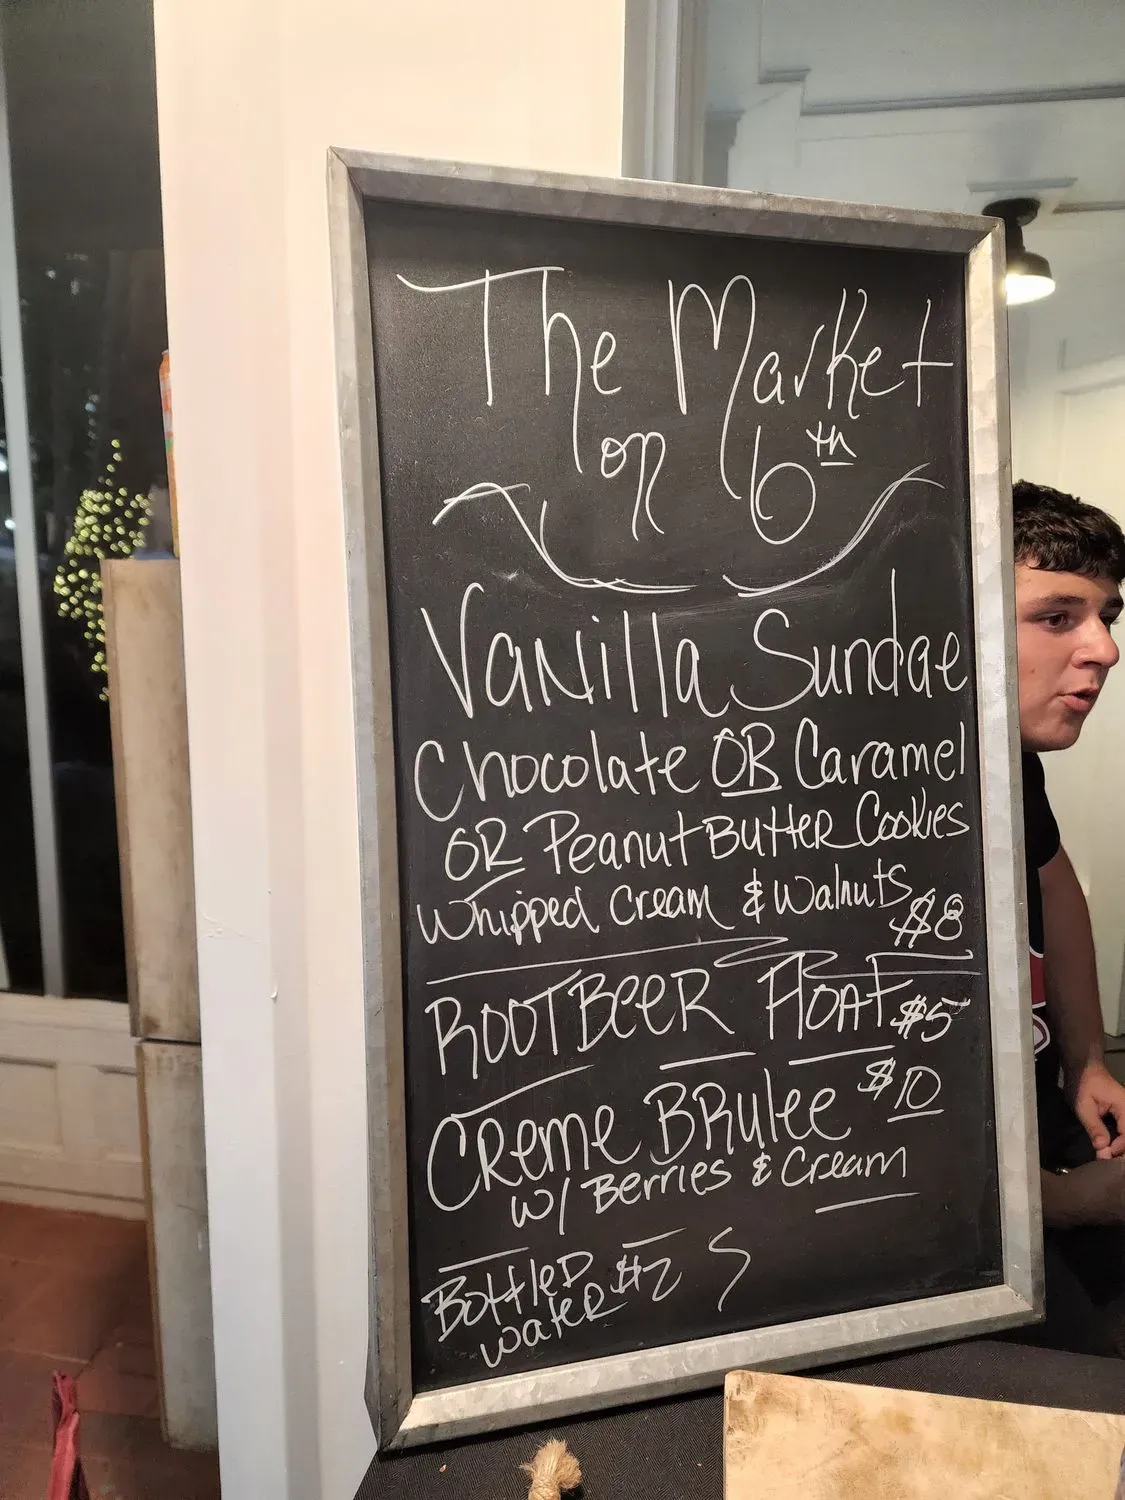 The Market
on 6th
Vanilla Sundae
Chocolate OR Caramel
OR Peanut Butter Cookies
Whipped Cream & Walnuts $8
ROOT BEER FlOAT $5
CReme BRulee $10
w/ Berries & Cream
BottleD $2
WateR